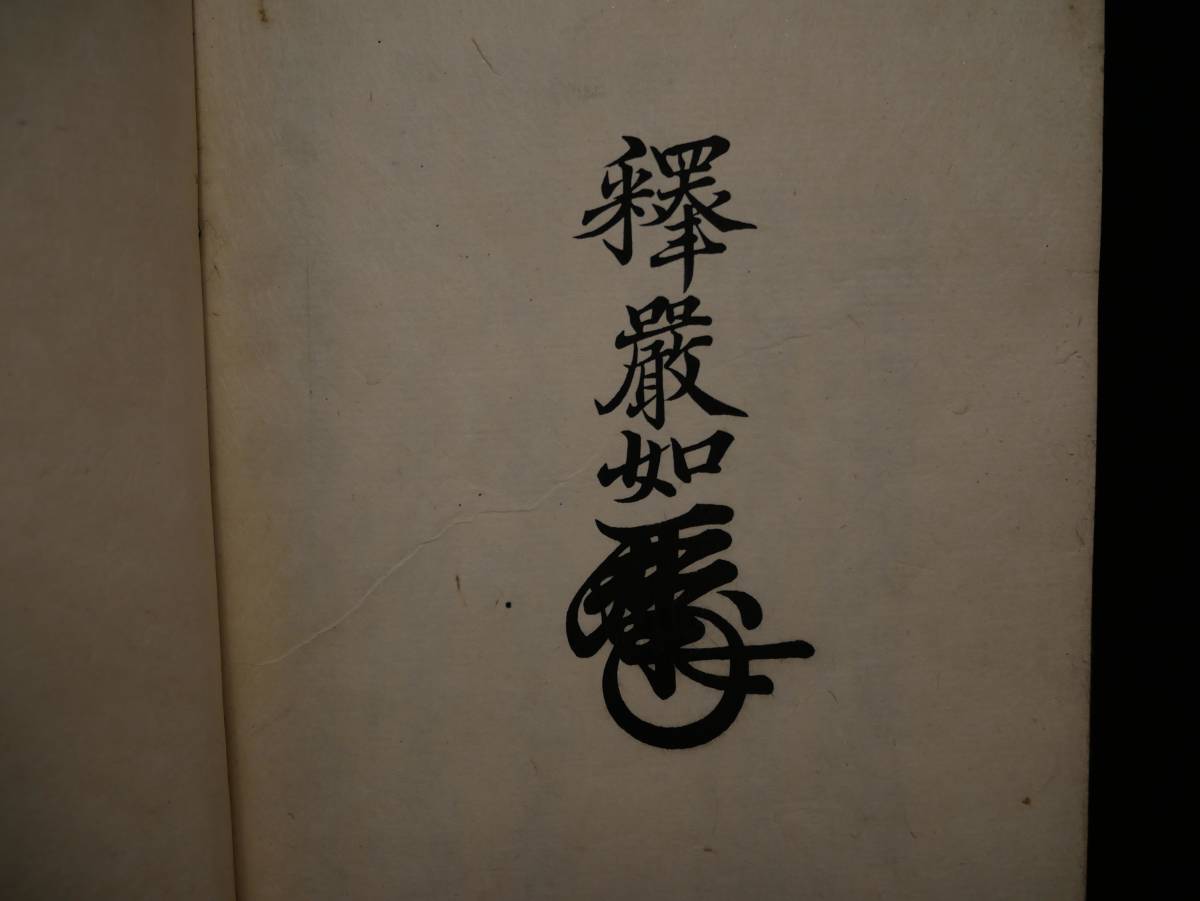 釋嚴如